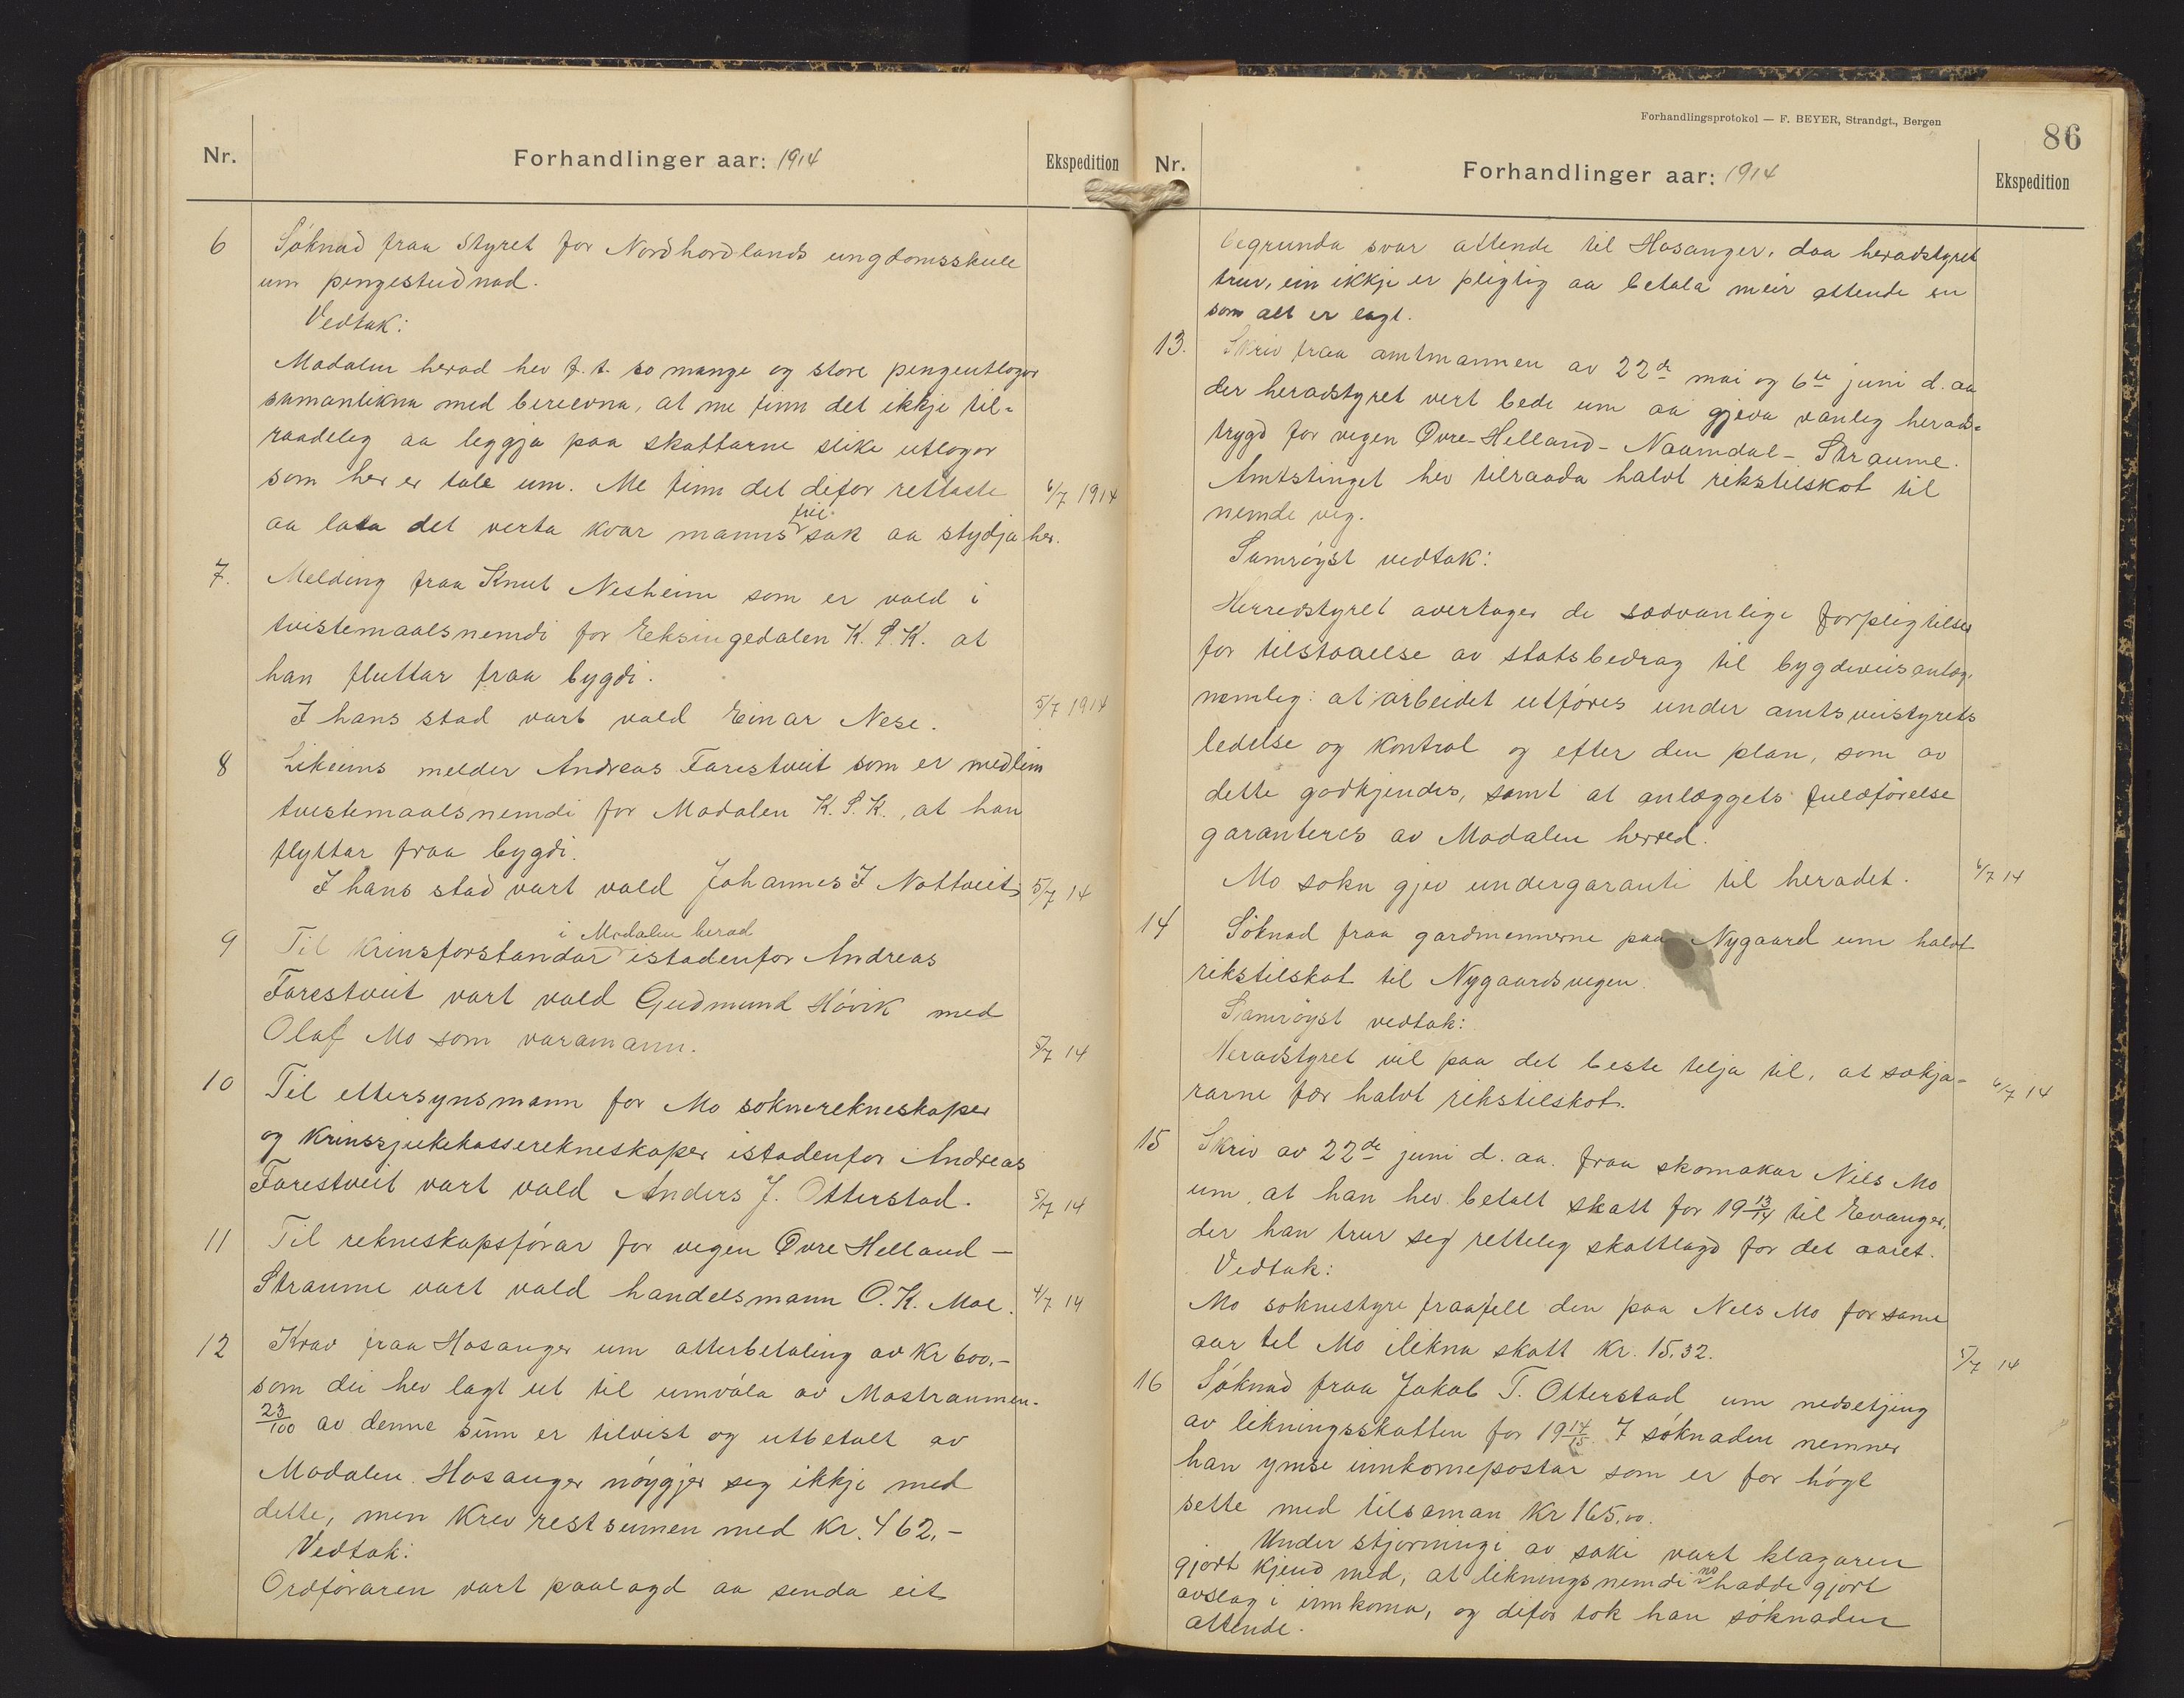 Nr.
Forhandlinger aar: 1914
Ekspedition
6 Söknad fraa Styret for Nordhordlands ungdomsskule
um pengestudnad.
Vedtak:
Modalen herad hev f. t. so mange og store pengeutlogor
samanlikna med bereevna, at me finn det ikkje til-
raadeleg aa leggja paa skattarne slike utlogor
som her er tale um. Me finn det difor rettaste 6/7 1914
frie
aa lata det verta kvar manns sak aa stydja her.
7. Melding fraa Knut Nesheim som er vald i
tvistemaalsnemdi for Eeksingedalen K. S. K. at
han fluttar fraa bygdi.
I hans stad vart vald Einar Nese. 5/7 1914
8 Likeins melder Andreas Farestveit som er medlem
tvistemaalsnemdi for Modalen K. S. K., at han
flyttar fraa bygdi.
I hans stad vart vald Johannes I Nottveit 5/7 14
i Modalen herad
9 Til Krinsforstandar istadenfor Andreas
Farestveit vart vald Gudmund Hövik med
Olaf Mo som varamann. 5/7 14
10 Til ettersynsmann for Mo soknerekneskaper
og Krinssjukekasserekneskaper istadenfor Andreas
Farestveit vart vald Anders J. Otterstad. 5/7 14
11 Til rekneskapsförar for vegen Øvre Helland —
Straume vart vald handelsmann O. K. Moe. 4/7 14
12 Krav fraa Hosanger um atterbetaling av Kr 600,-
som dei hev lagt ut til umvöla av Mostraumen.
23/100 av denne sum er tilvist og utbetalt av
Modalen. Hosanger nöygjer seg ikkje med
dette, men Krev restsumen med Kr. 462,-
Vedtak:
Ordföraren vart paalagd aa senda eit
Forhandlingsprotokol — F. BEYER, Strandgt., Bergen
86
Nr.
Forhandlinger aar: 1914
Ekspedition
begrunda svar attende til Hosanger, daa heradstyret
trur, ein ikkje er pligtig aa betala meir attende en
som alt er lagt.
13. Skriv fraa amtmannen av 22de mai og 6te juni d. aa
der heradstyret vert bede um aa gjeva vanleg herads-
trygd for vegen Øvre-Helland - Naamdal - Straume.
Amtstinget hev tilraada halvt rikstilskot til
nemde veg.
Samröyst vedtak:
Herredstyret overtager de sædvanlige forpligtelser
for tilstaaelse av statsbedrag til bygdeveisanlæg,
nemlig: at arbeidet utföres under amtsveistyrets
ledelse og kontrol og efter den plan, som av
dette godkjendes, samt at anlæggets fuldförelse
garanteres av Modalen herred.
Mo sokn gjev undergaranti til heradet. 6/7 14
14 Söknad fraa gardmennerne paa Nygaard um halvt
rikstilskot til Nygaardsvegen.
Samröyst vedtak:
Heradstyret vil paa det beste telja til, at sökja-
rarne fær halvt rikstilskot. 6/7 14
15 Skriv av 22de juni d. aa. fraa skomakar Nils Mo
um, at han hev betalt skatt for 19 13/14 til Evanger,
der han trur seg rettelig skattlagd for det aaret.
Vedtak:
Mo soknestyre fraafell den paa Nils Mo for same
aar til Mo ilikna skatt kr. 15.32. 5/7 14
16 Söknad fraa Jakob T. Otterstad um nedsetjing
av likningsskatten for 19 14/15. I söknaden nemner
han ymse innkomepostar som er for högt
sette med tilsaman Kr 165,00.
Under stjorningi av saki vart klagaren
gjort kjend med, at likningsnemdi no hadde gjort
avslag i innkoma, og difor tok han söknaden
attende.